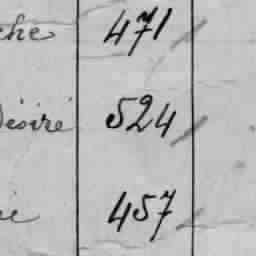 che 471
Désiré 524
ie 457